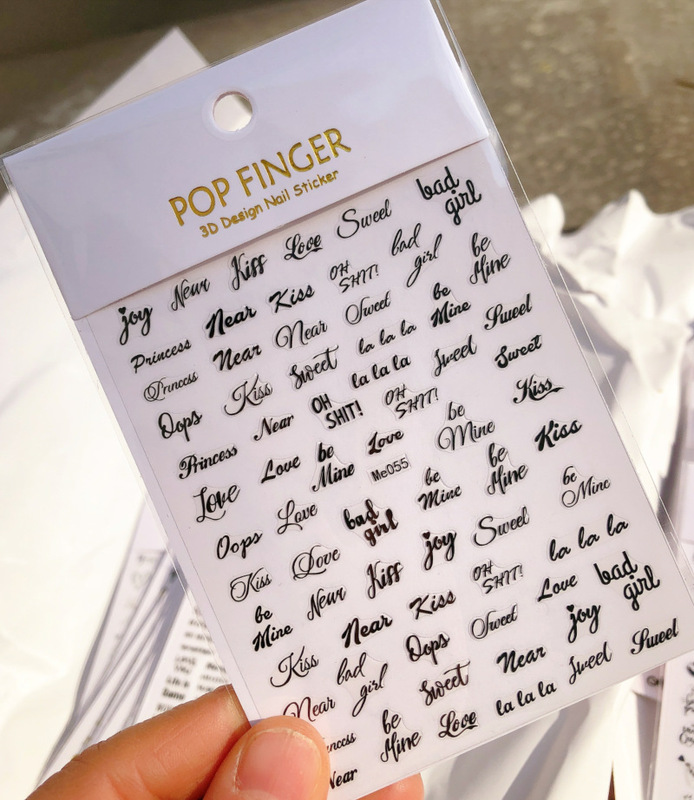 POP FINGER
3D Design Nail Sticker
joy Near Kiss Love Sweet bad girl
Princess Near Kiss OH SHIT! bad girl be Mine
Princess Near Near Sweet be Mine Sweet
Oops Kiss Sweet la la la la la la Sweet Sweet
Princess Near OH SHIT! OH SHIT! be Mine Kiss
Love Love be Mine Love Me055 be Mine be Mine Kiss
Oops Love bad girl joy Sweet be Mine
Kiss Love Kiss Kiss OH SHIT! la la la
be Mine Near Near Oops Sweet Love bad girl
Kiss bad girl Sweet Near joy Sweet
Near be Mine Love la la la Sweet
Near